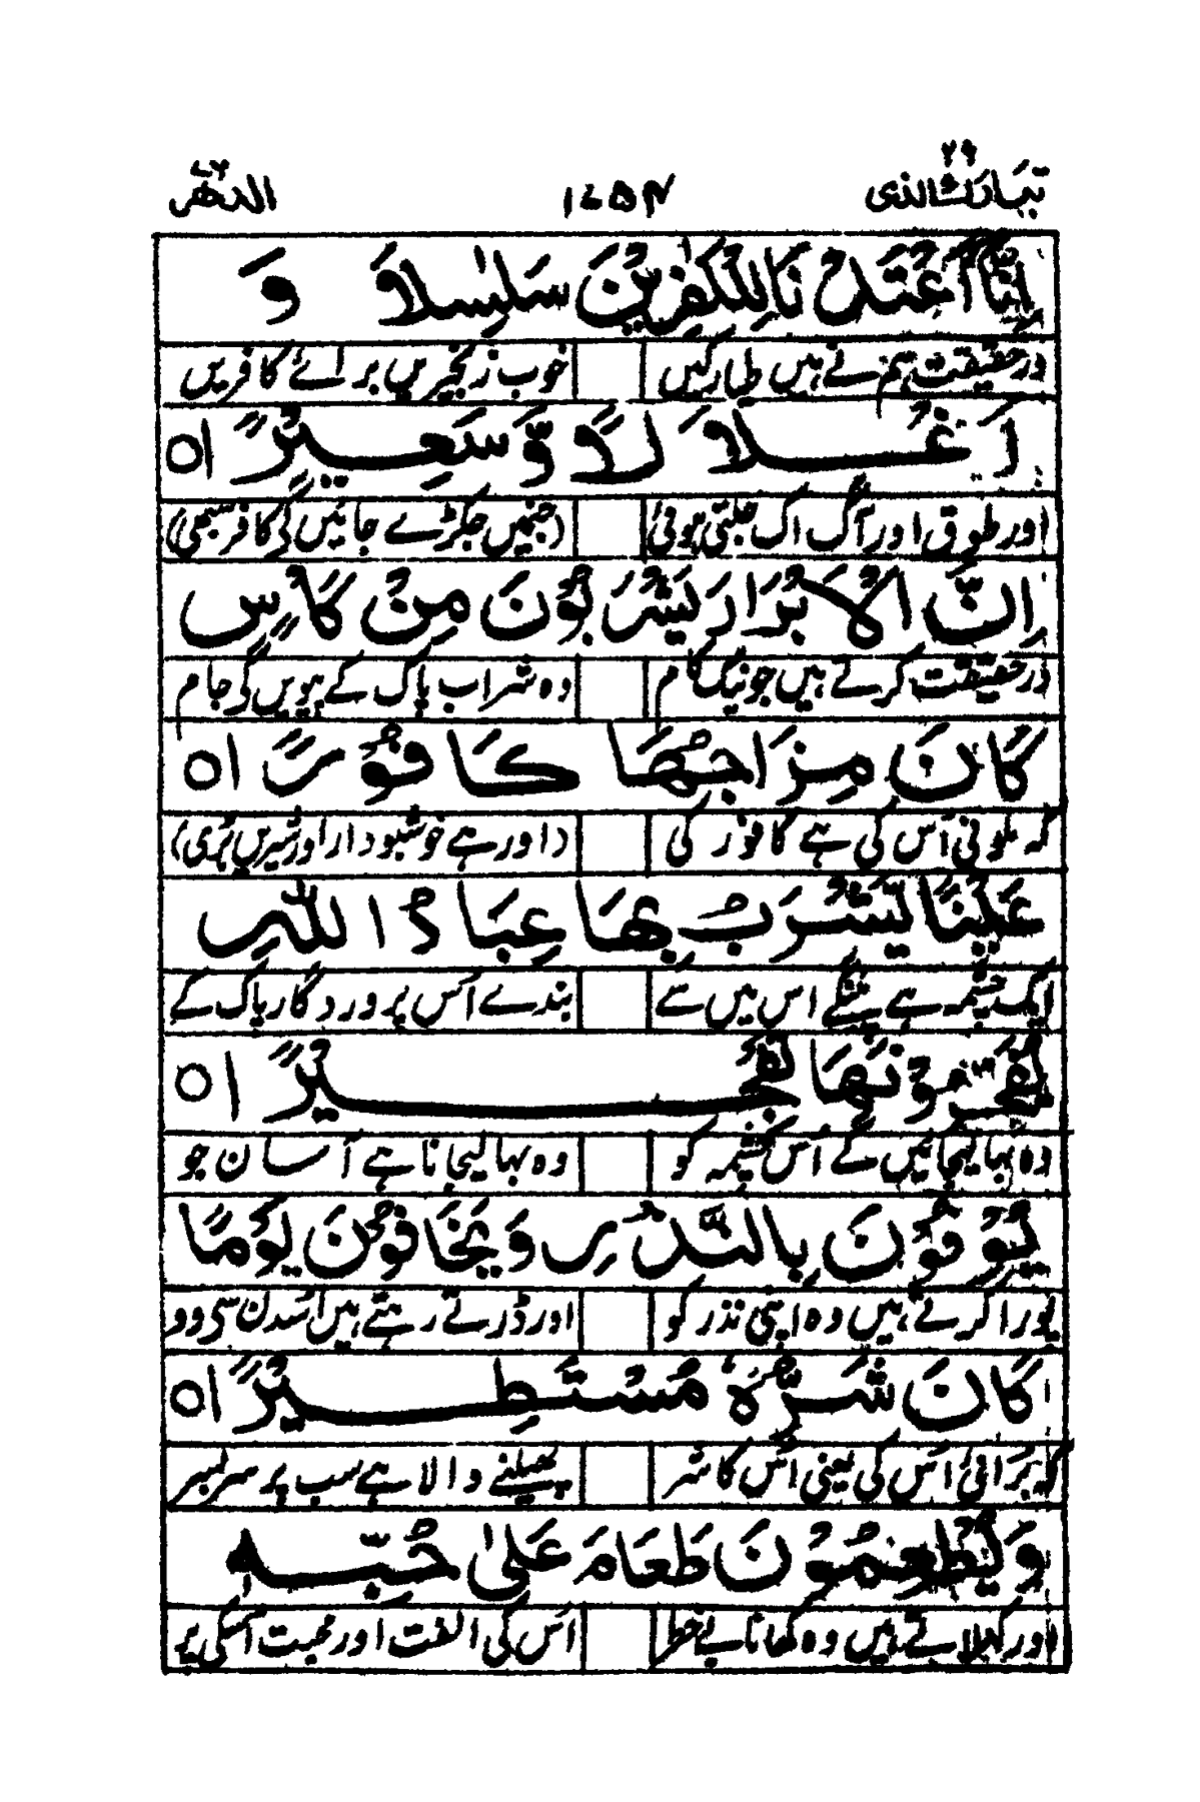 تبارك الذی ٢٩ ١٧٥٤ الدھر ٧٦
اِنَّاۤ اَعْتَدْنَا لِلْكٰفِرِیْنَ سَلٰسِلَاۡ وَ
درحقیقت ہم نے ہیں طیار کیں خوب زنجیریں برائے کافریں
اَغْلٰلًا وَّ سَعِیْرًا ○
اور طوق اور آگ اک جلتی ہوئی (جنہیں جکڑے جائیں گی کافر سبھی)
اِنَّ الْاَبْرَارَ یَشْرَبُوْنَ مِنْ كَاْسٍ
درحقیقت کرتے ہیں جو نیک کام وہ شراب پاک کے پیویں گی جام
كَانَ مِزَاجُهَا كَافُوْرًا ○
کہ ملونی اس کی ہے کافور کی (اور ہے خوشبودار اور شیریں بڑی)
عَیْنًا یَّشْرَبُ بِهَا عِبَادُ اللّٰهِ
ایک چشمہ ہے پئیں گے اس میں سے بندے اس پروردگار پاک کے
یُفَجِّرُوْنَهَا تَفْجِیْرًا ○
وہ بہا لیجائیں گے اس چشمہ کو وہ بہا لیجانا ہے آسان جو
یُوْفُوْنَ بِالنَّذْرِ وَ یَخَافُوْنَ یَوْمًا
پورا کرتے ہیں وہ اپنی نذر کو اور ڈرتے رہتے ہیں اس دن سی وو
كَانَ شَرُّهٗ مُسْتَطِیْرًا ○
کہ برائی اس کی یعنی اس کا شر پھیلنے والا ہے سب پر سربسر
وَ یُطْعِمُوْنَ الطَّعَامَ عَلٰى حُبِّهٖ
اور کھلاتے ہیں وہ کھانا بے خطر اس کی الفت اور محبت اسکی پر